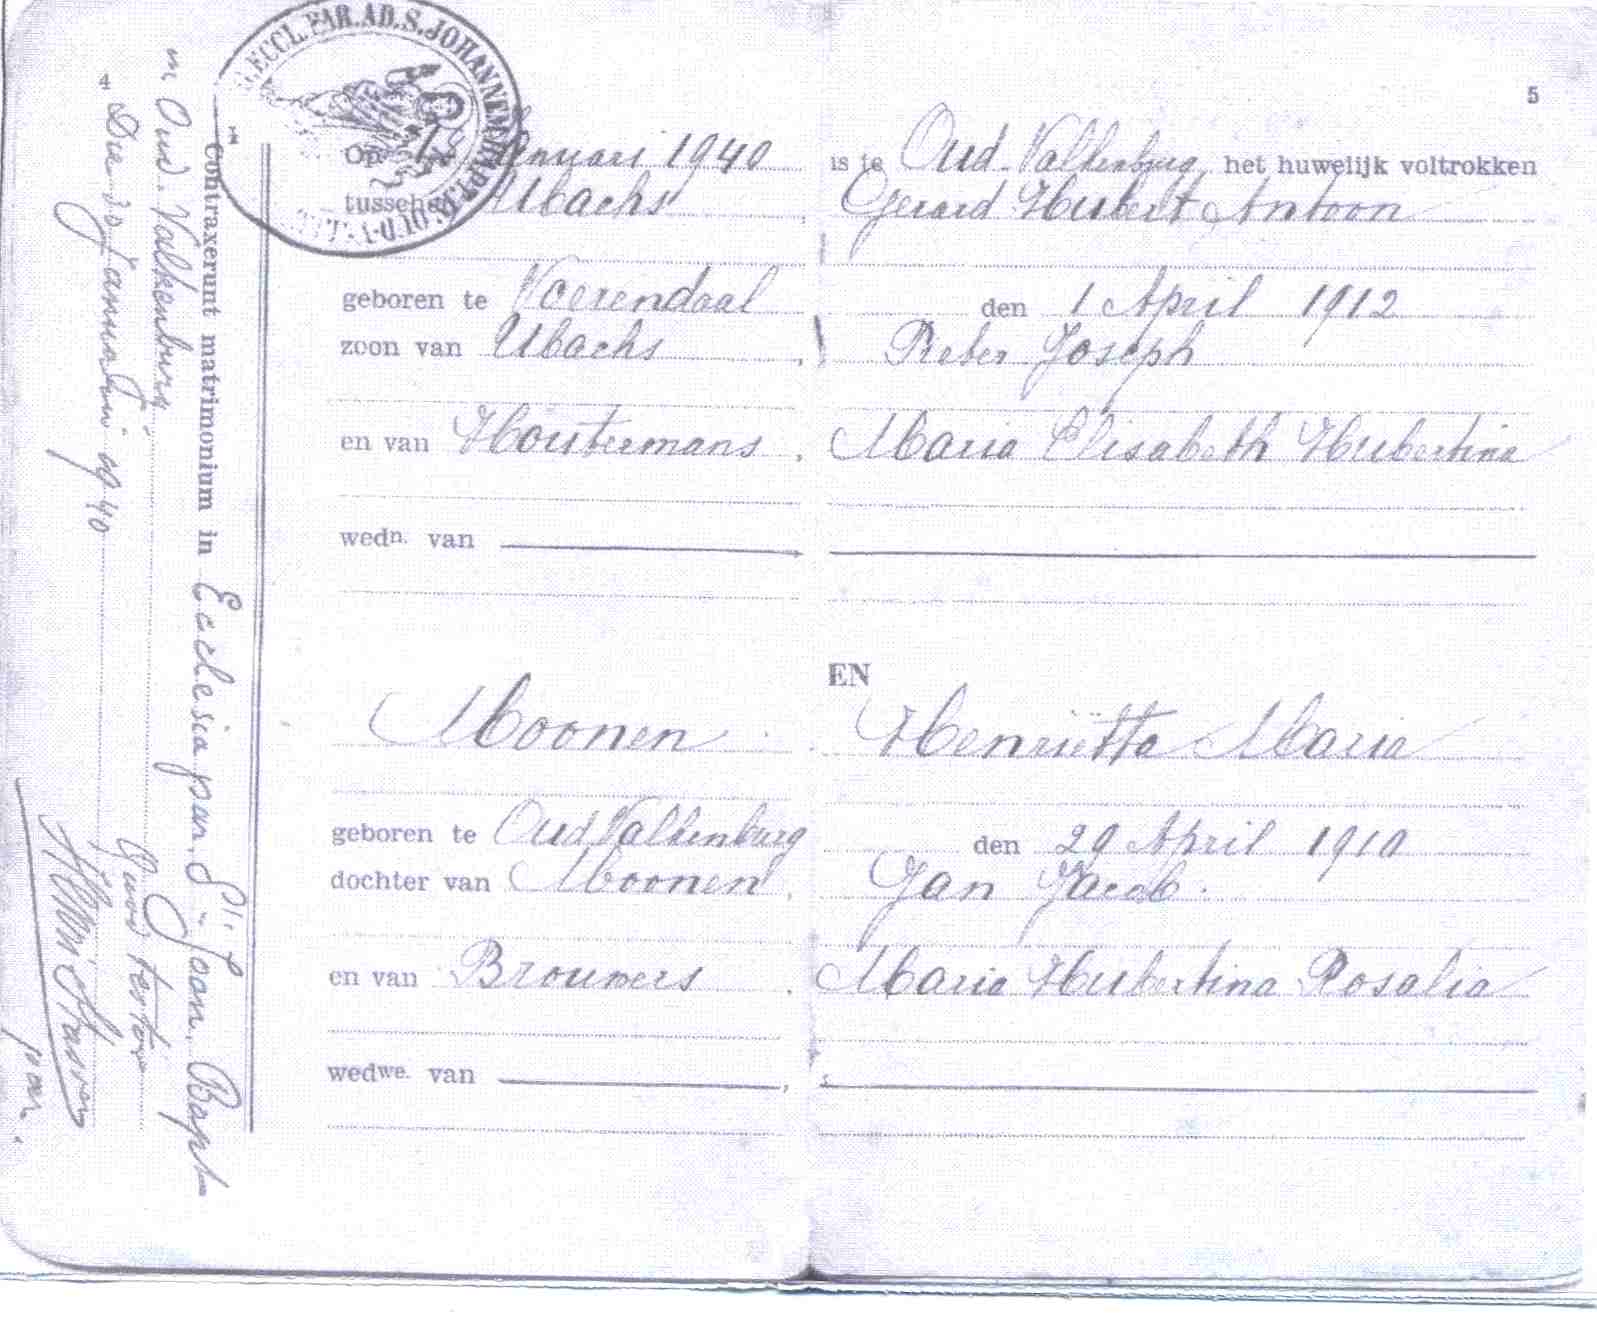 4
5
ECCL. PAR. AD. S. JOHANNEM BAPT.
Op Januari 1940 is te Oud-Valkenburg, het huwelijk voltrokken
tusschen Ubachs, Gerard Hubert Antoon
geboren te Voerendaal den 1 April 1912
zoon van Ubachs, Pieter Joseph
en van Houtermans, Maria Elisabeth Hubertina
wedn. van
EN
Moonen Henriëtta Maria
geboren te Oud Valkenburg den 29 April 1910
dochter van Moonen, Jan Jacob.
en van Brouwers, Maria Hubertina Rosalia
wedwe. van
Contraxerunt matrimonium in Ecclesia par. St. Joan. Bapt
in Oud-Valkenburg,
Die 30 Januarii 1940
Quod testor